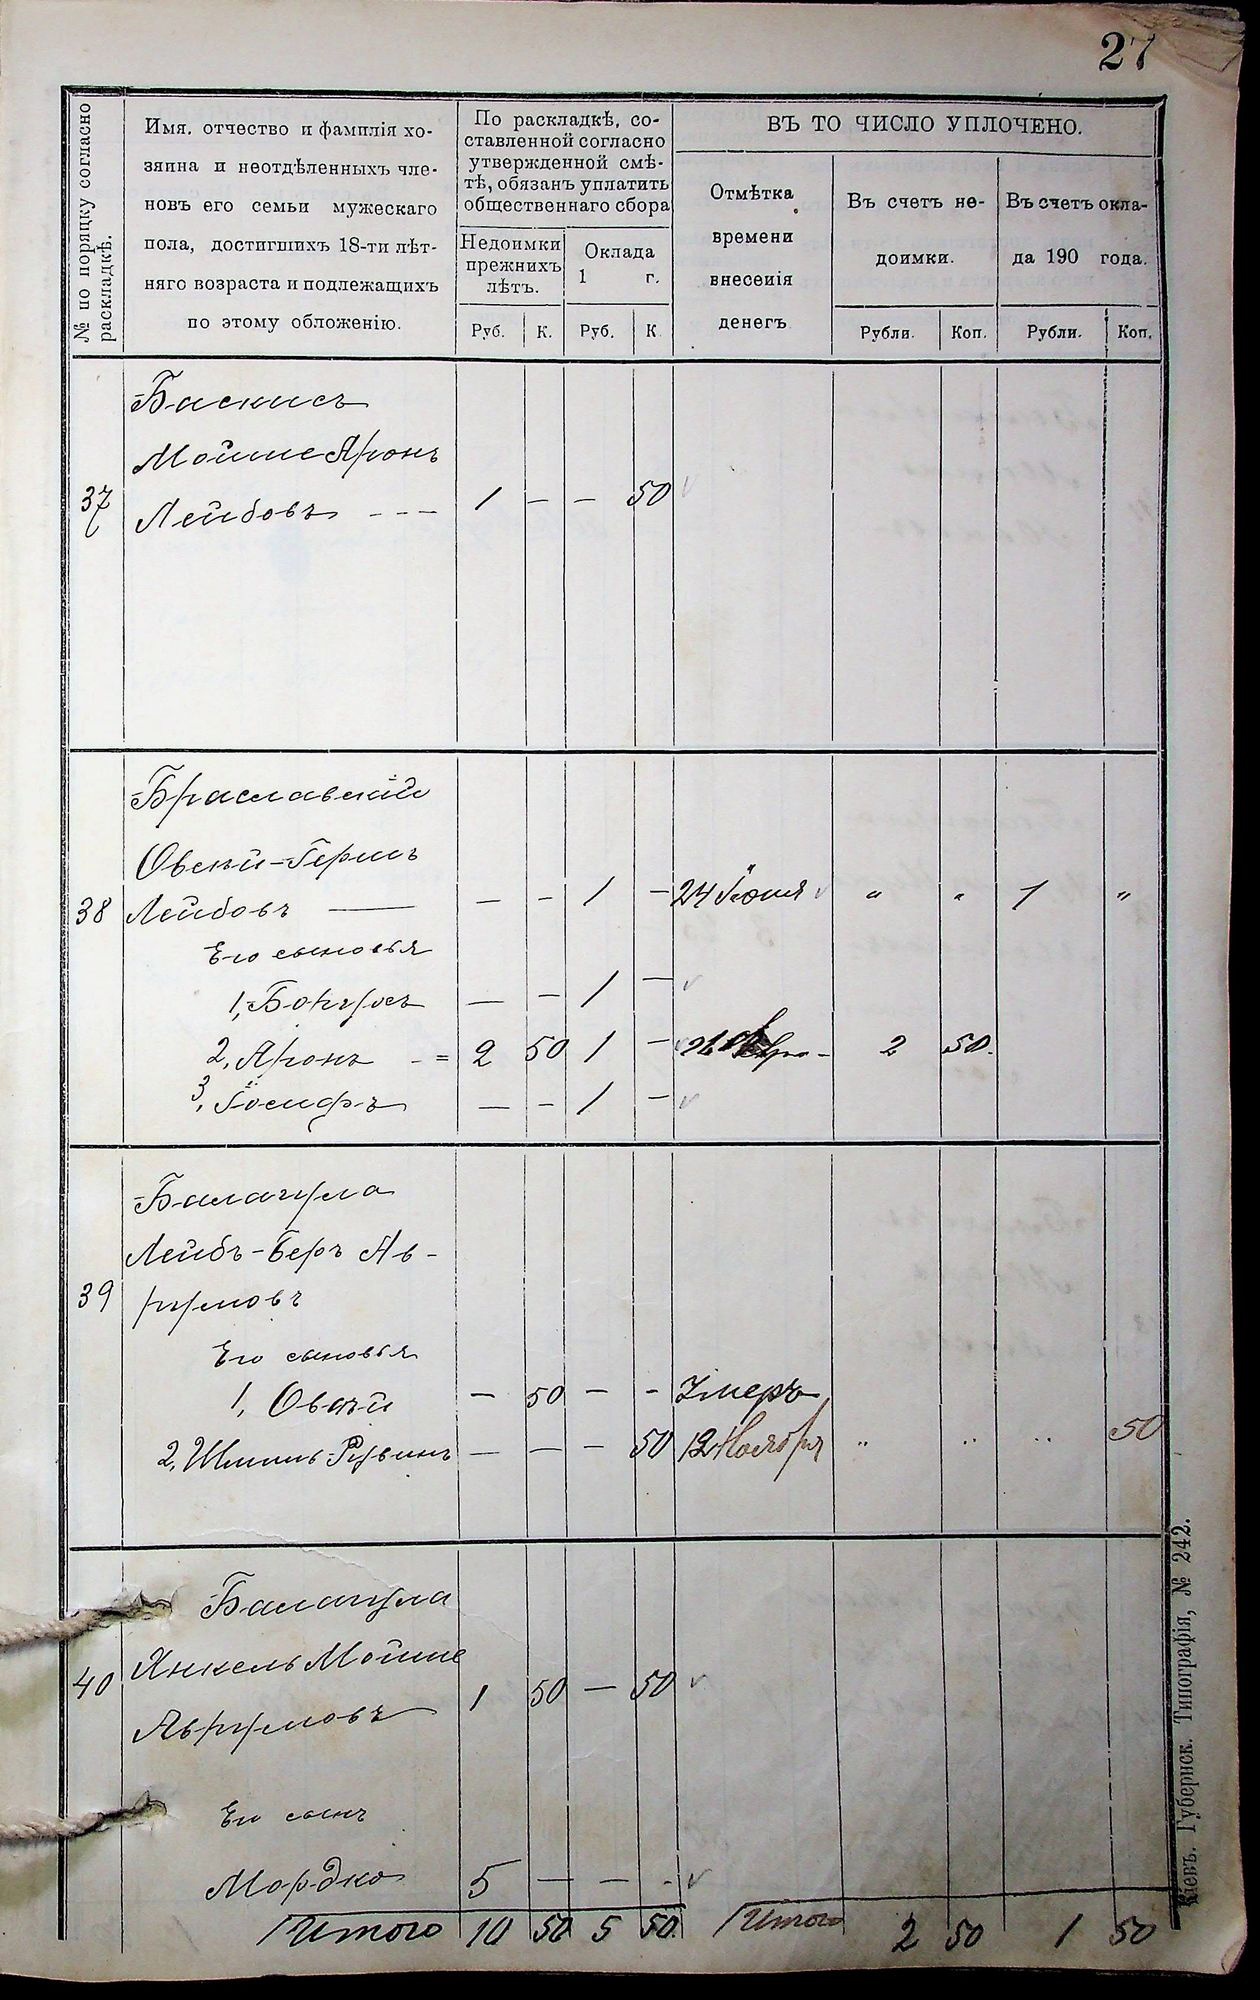 27
№ по порядку согласно раскладкѣ.
Имя, отчество и фамилія хо-
зяина и неотдѣленныхъ чле-
новъ его семьи мужескаго
пола, достигшихъ 18-ти лѣт-
няго возраста и подлежащихъ
по этому обложенію.
По раскладкѣ, со-
ставленной согласно
утвержденной смѣ-
тѣ, обязанъ уплатить
общественнаго сбора
Недоимки
прежнихъ
лѣтъ.
Оклада
1 г.
Руб. К. Руб. К
ВЪ ТО ЧИСЛО УПЛОЧЕНО.
Отмѣтка
времени
внесенія
денегъ
Въ счетъ не-
доимки.
Рубли. Коп.
Въ счетъ окла-
да 190 года.
Рубли. Коп.
Баскисъ
Мойше Аронъ
37 Лейбовъ - - - 1 — — 50
Браславскій
Овсѣй-Гершъ
38 Лейбовъ — — — 1 — 24 Іюня " " 1 "
Его сыновья
1, — — 1 —
2, Аронъ - = 2 50 1 — 2 50.
3, Іосифъ — — 1 —
Балагула
Лейбъ-Беръ Ав-
39 румовъ
Его сыновья
1, Овсѣй — 50 — - Умеръ
2, Шмиль-Рувинъ — — — 50 12 Ноября " " " 50
Балагула
Янкель Мойше
40 Аврумовъ 1 50 — 50
Его сынъ
Мордко 5 — — -
Итого 10 50 5 50. Итого 2 50 1 50
Кіевъ. Губернск. Типографія, № 242.